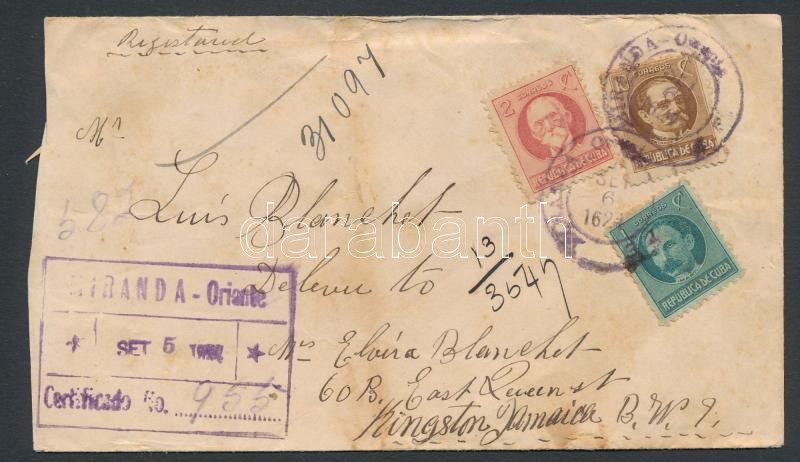 Registered
31097
Mr
Luis Blanchet
Deliver to
13/3547
Mrs Elvira Blanchet
60 B. East Queen st
Kingston Jamaica B.W.I.
582
MIRANDA - Oriente
SET 5
Certificado No. 955
2 CORREOS
REPUBLICA DE CUBA
CORREOS
REPUBLICA DE CUBA
1 CORREOS
REPUBLICA DE CUBA
MIRANDA - O
6
darabanth